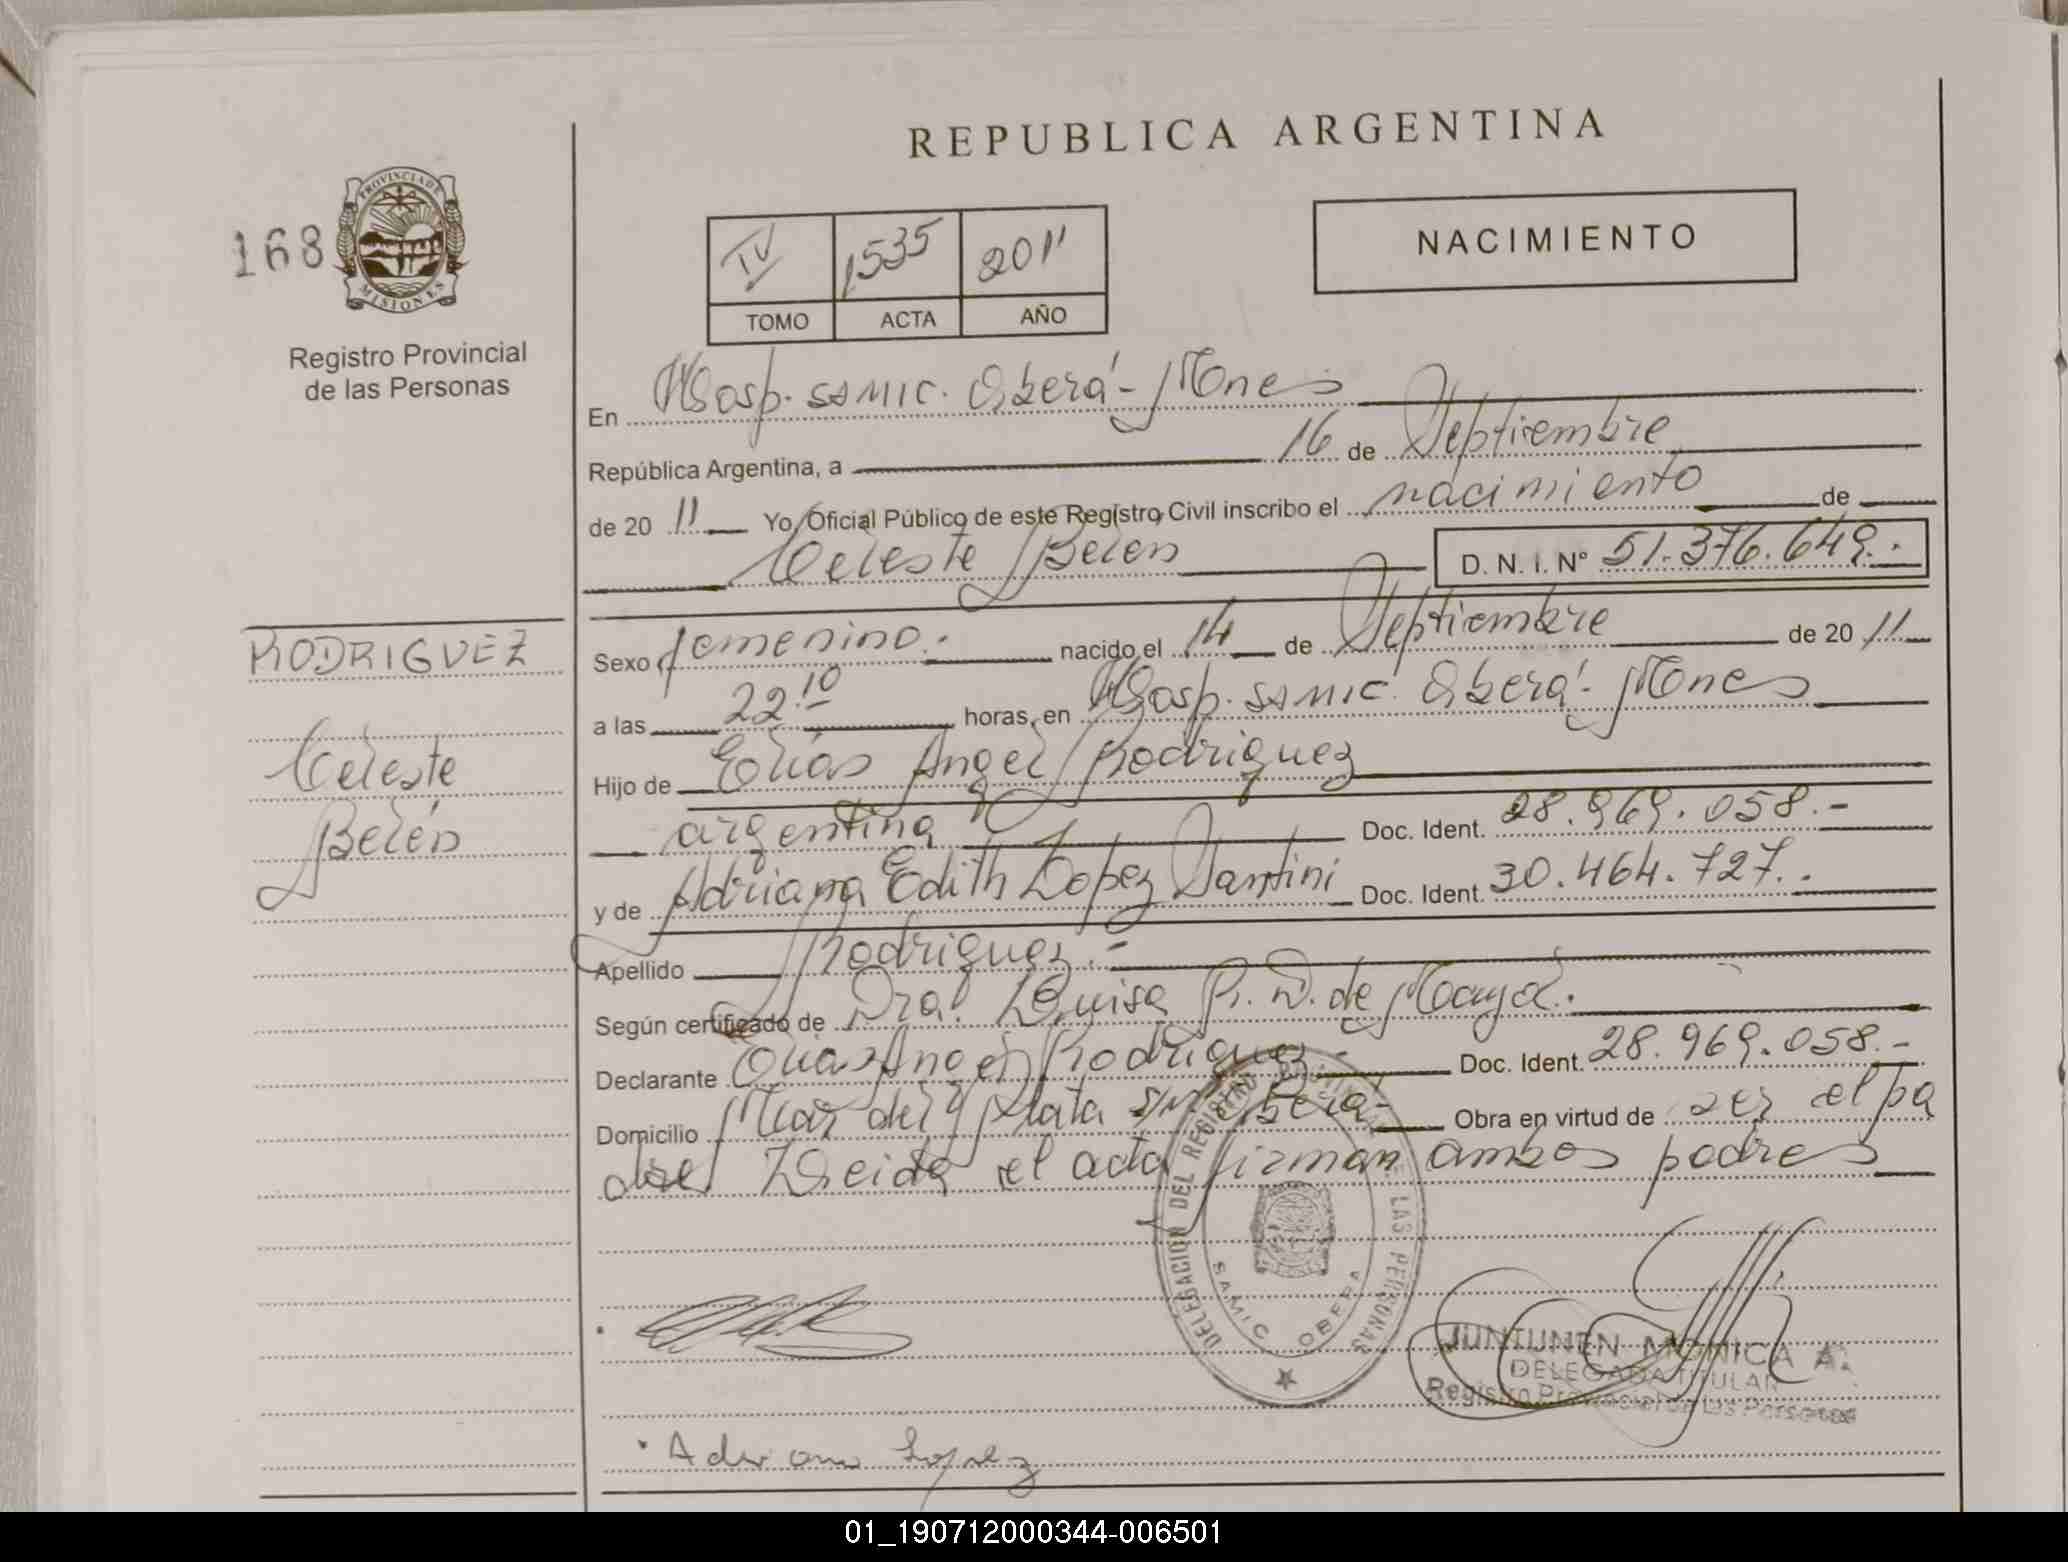 REPUBLICA ARGENTINA
168
PROVINCIA DE
MISIONES
Registro Provincial
de las Personas
IV 1535 2011
TOMO ACTA AÑO
NACIMIENTO
En Hosp. SAMIC. Oberá - Mnes
República Argentina, a 16 de Septiembre
de 20 11 Yo, Oficial Público de este Registro Civil inscribo el nacimiento de
Celeste Belén D. N. I. N° 51.376.649.-
RODRIGUEZ
Celeste
Belén
Sexo femenino. nacido el 14 de Septiembre de 20 11
a las 22.10 horas, en Hosp. SAMIC. Oberá - Mnes
Hijo de Elias Angel Rodriguez
argentina Doc. Ident. 28.969.058.-
y de Adriana Edith Lopez Santini Doc. Ident. 30.464.727.
Apellido Rodriguez.-
Según certificado de Dra. Luisa R. D. de
Declarante Elias Angel Rodriguez - Doc. Ident. 28.969.058.-
Domicilio Mar del Plata S/N° Oberá - Obra en virtud de ser el pa
dre Leida el acta firman ambos padres
DELEGACION DEL REGISTRO PROVINCIAL DE LAS PERSONAS
SAMIC OBERA
JUNTUNEN MONICA A.
DELEGADA TITULAR
Registro Provincial de las Personas
Adriana Lopez
01_190712000344-006501